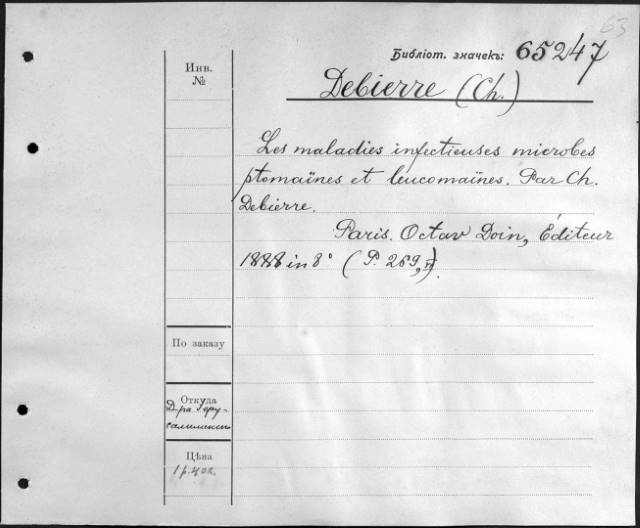 63
Библіот. значекъ: 65247
Инв.
№
Debierre (Ch.)
Les maladies infectieuses microbes
ptomaïnes et leucomaïnes. Par Ch.
Debierre.
Paris. Octav Doin, Éditeur
1888 in 8° (P. 269,
По заказу
Откуда
Д-ра Іеру-
салимскаго
Цѣна
1 р. 40 к.